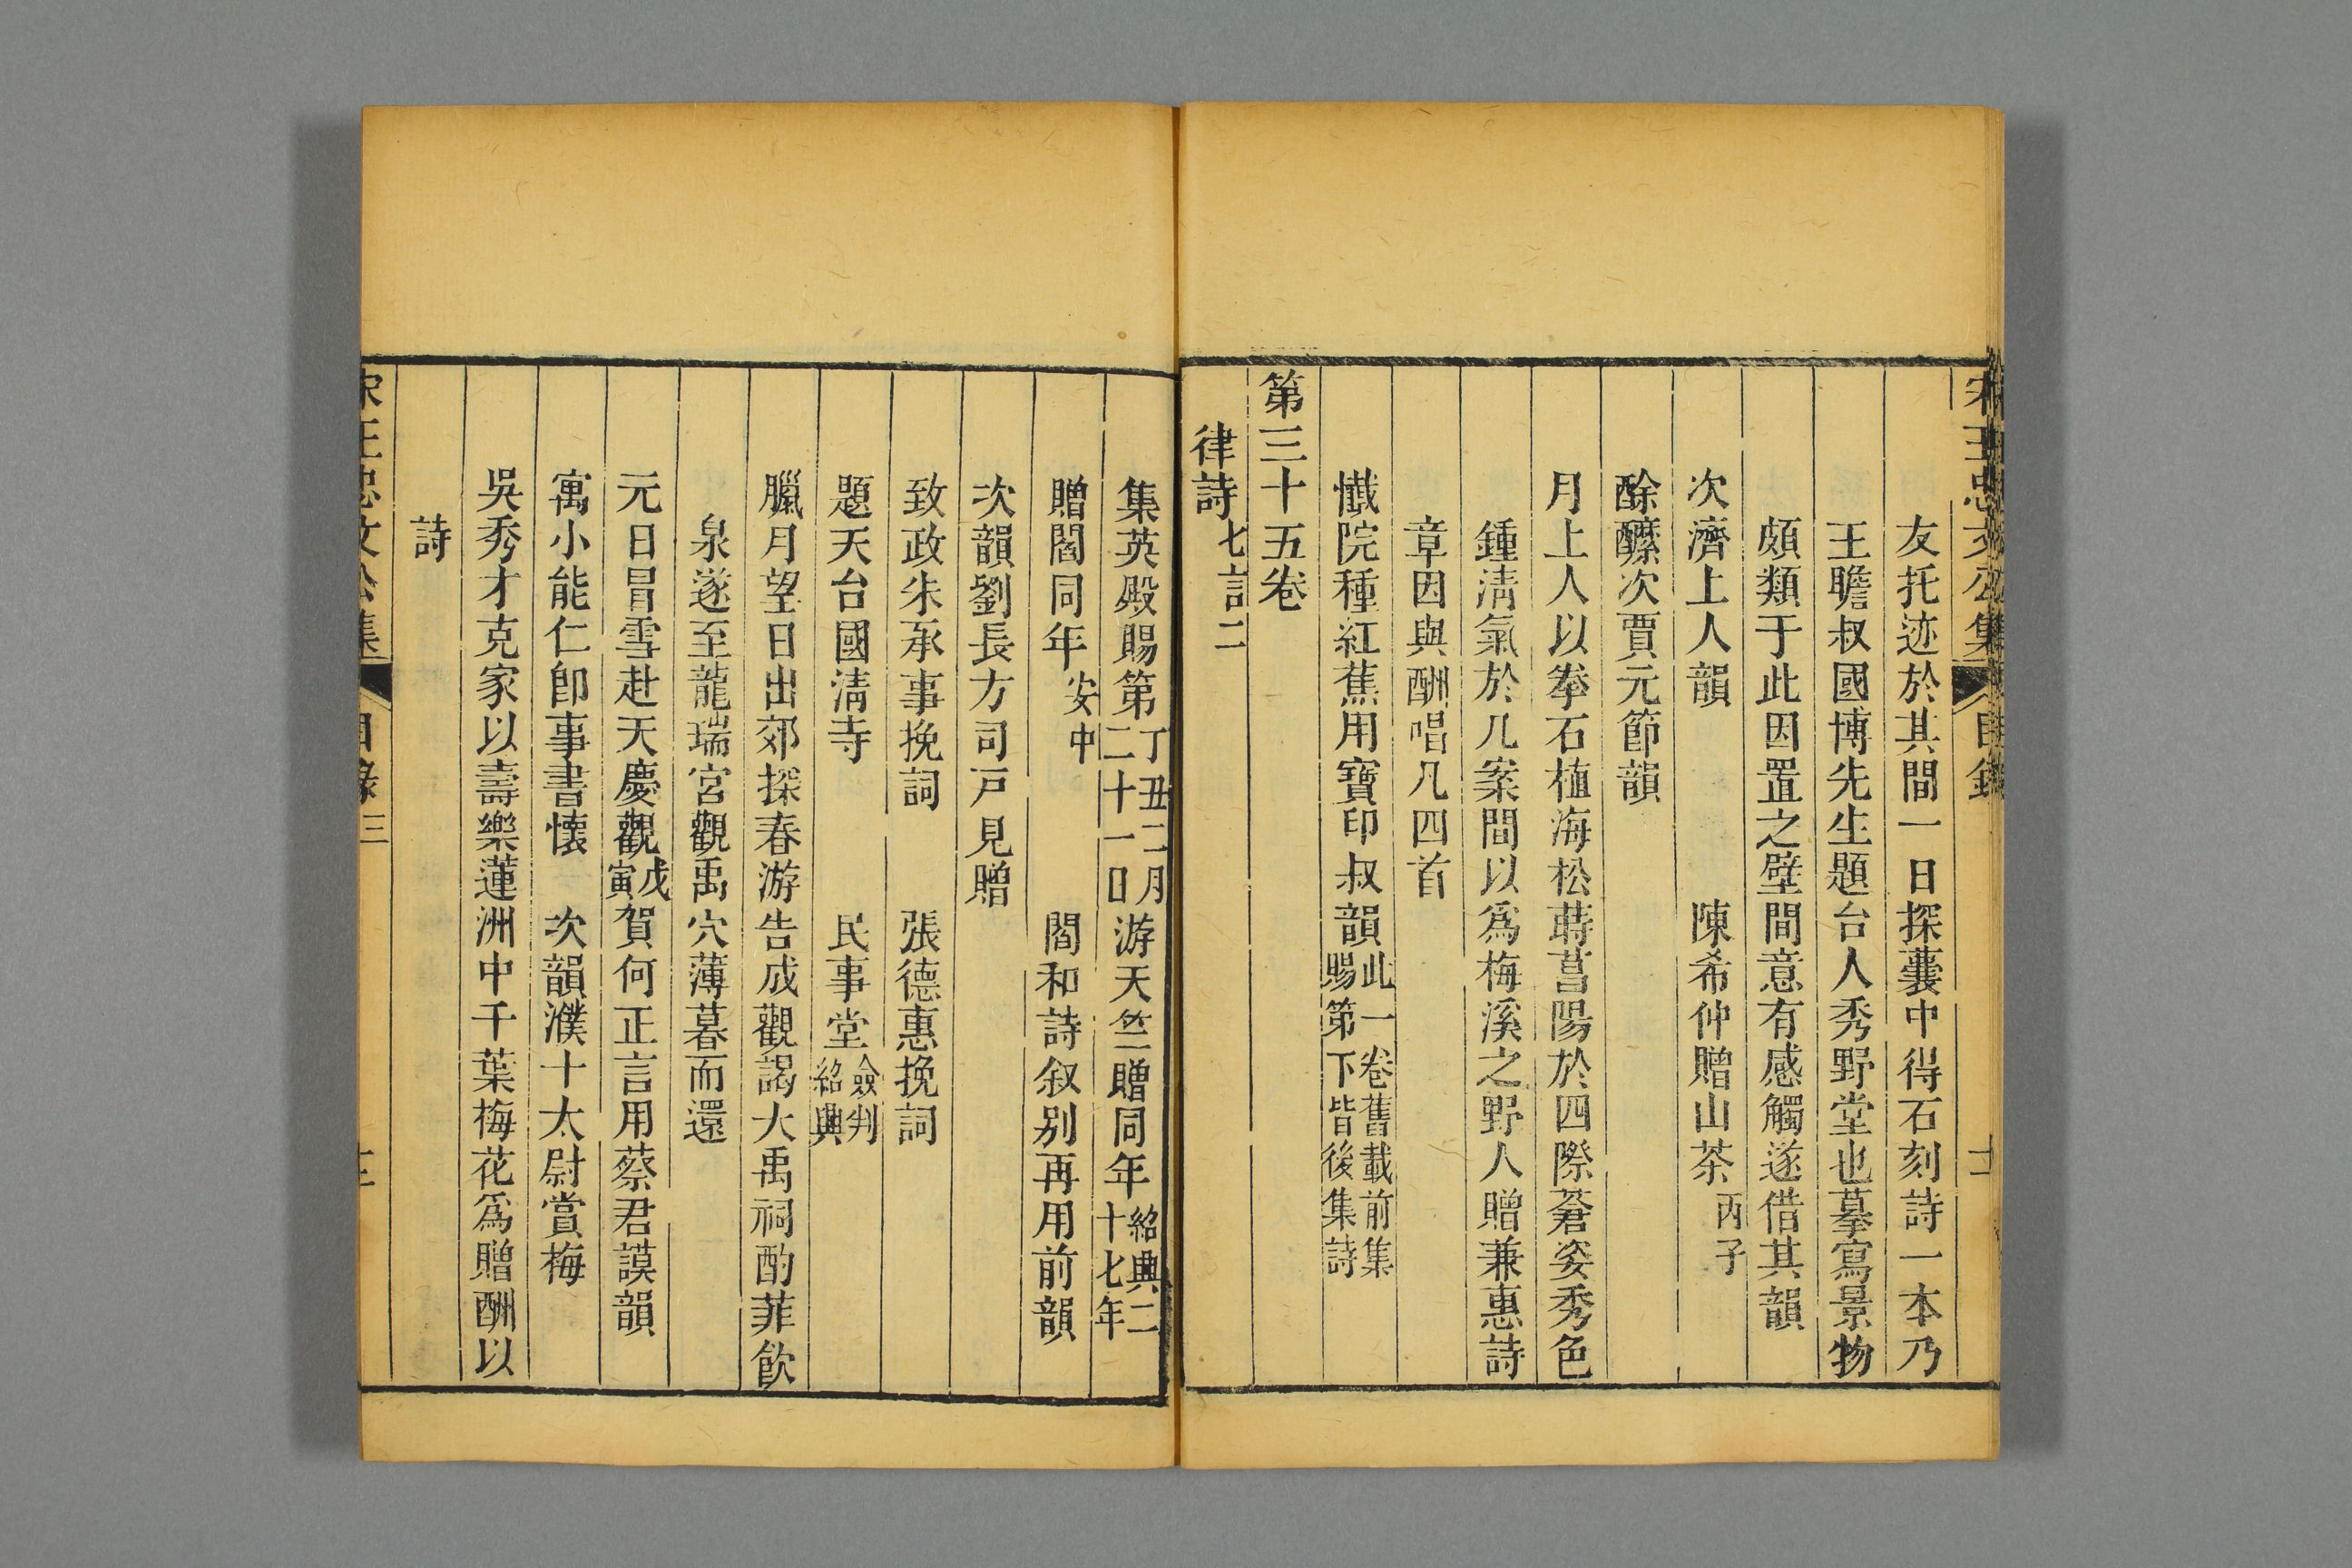 宋王忠文公集 目錄 十二
友托迹於其間一日探囊中得石刻詩一本乃
王瞻叔國博先生題台人秀野堂也摹寫景物
頗類于此因置之壁間意有感觸遂借其韻
次濟上人韻 陳希仲贈山茶丙子
酴醿次賈元節韻
月上人以拳石植海松蒔菖陽於四際蒼姿秀色
鍾淸氣於几案間以爲梅溪之野人贈兼惠詩
章因與酬唱凡四首
懺院種紅蕉用寶印叔韻此一卷舊載前集賜第下皆後集詩
第三十五卷
律詩七言二
集英殿賜第丁丑二月二十一日 游天竺贈同年紹興二十七年
贈閻同年安中 閻和詩叙别再用前韻
次韻劉長方司戸見贈
致政朱承事挽詞 張德惠挽詞
題天台國淸寺 民事堂僉判紹興
臘月望日出郊探春游告成觀謁大禹祠酌菲飮
泉遂至龍瑞宮觀禹穴薄暮而還
元日冒雪赴天慶觀戊寅 賀何正言用蔡君謨韻
寓小能仁卽事書懷 次韻濮十太尉賞梅
吳秀才克家以壽樂蓮洲中千葉梅花爲贈酬以
詩
宋王忠文公集 目錄三